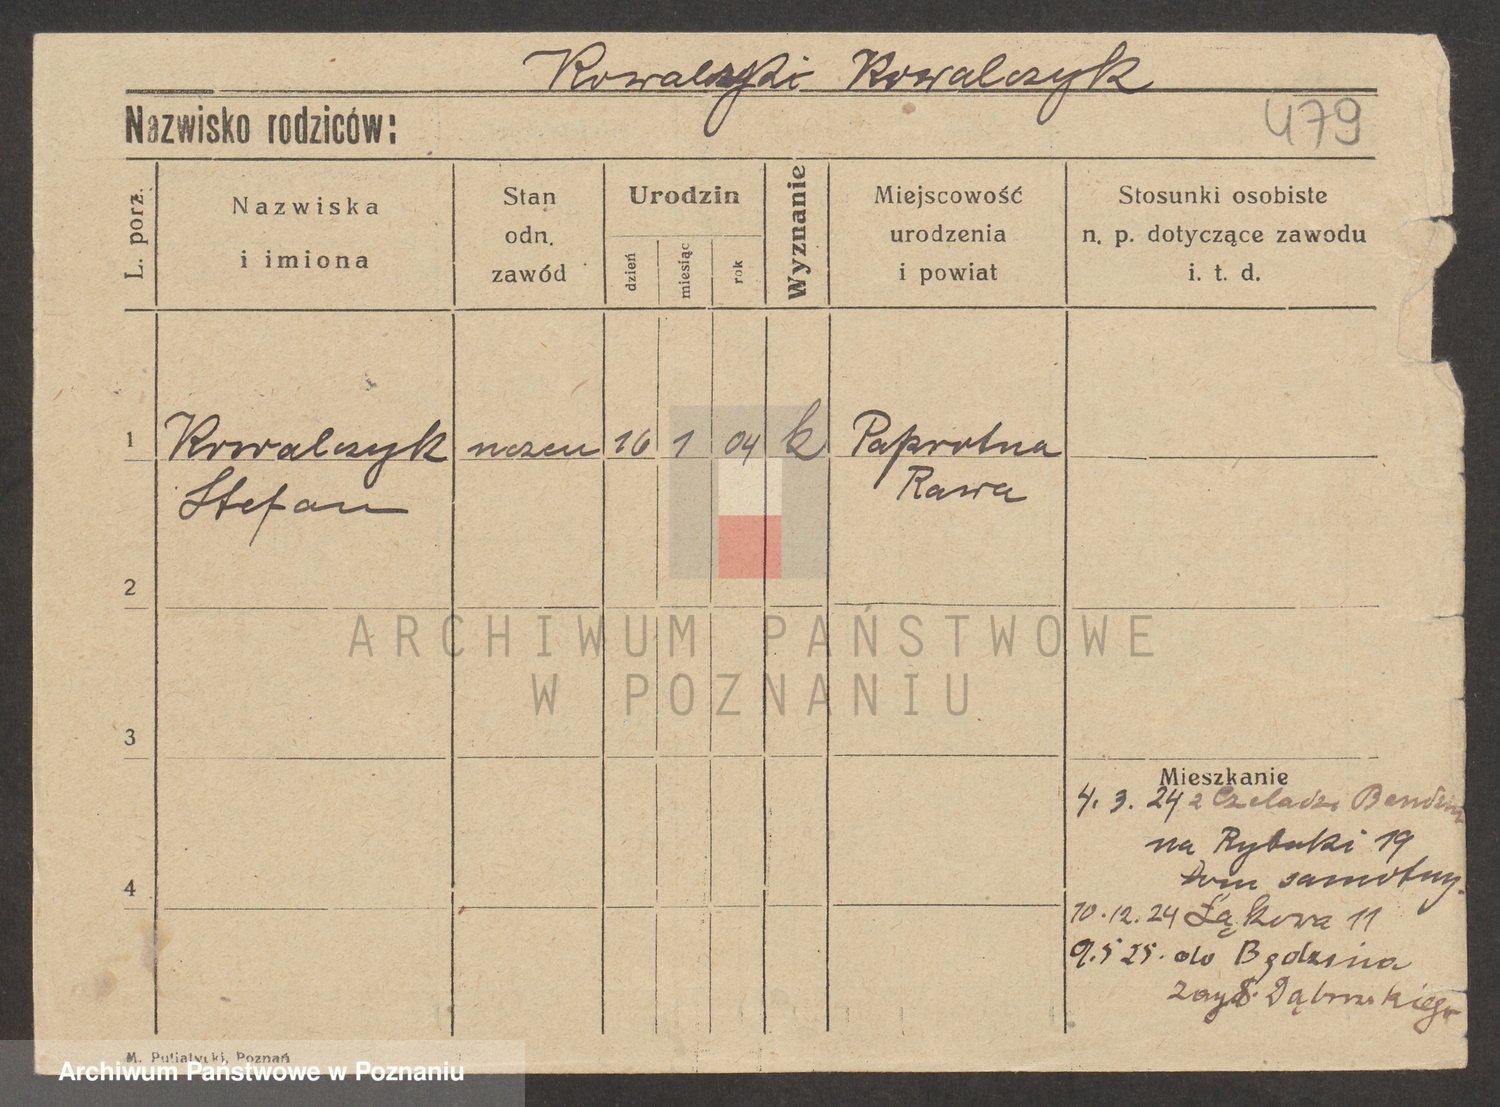 Kowalczyk
479
Nazwisko rodziców:
L. porz.
Nazwiska
i imiona
Stan
odn.
zawód
Urodzin
dzień
miesiąc
rok
Wyznanie
Miejscowość
urodzenia
i powiat
Stosunki osobiste
n. p. dotyczące zawodu
i. t. d.
1 Kowalczyk uczeń 16 1 04 k Paprotna
Stefan Rawa
2
ARCHIWUM PAŃSTWOWE
W POZNANIU
3
Mieszkanie
4. 3. 24 z Czeladzi
na Rybaki 19
dom samotny.
4
10.12.24 Łąkowa 11
9.5 25. do Będzina
Dąbrowskiego
M. Putiatycki, Poznań
Archiwum Państwowe w Poznaniu